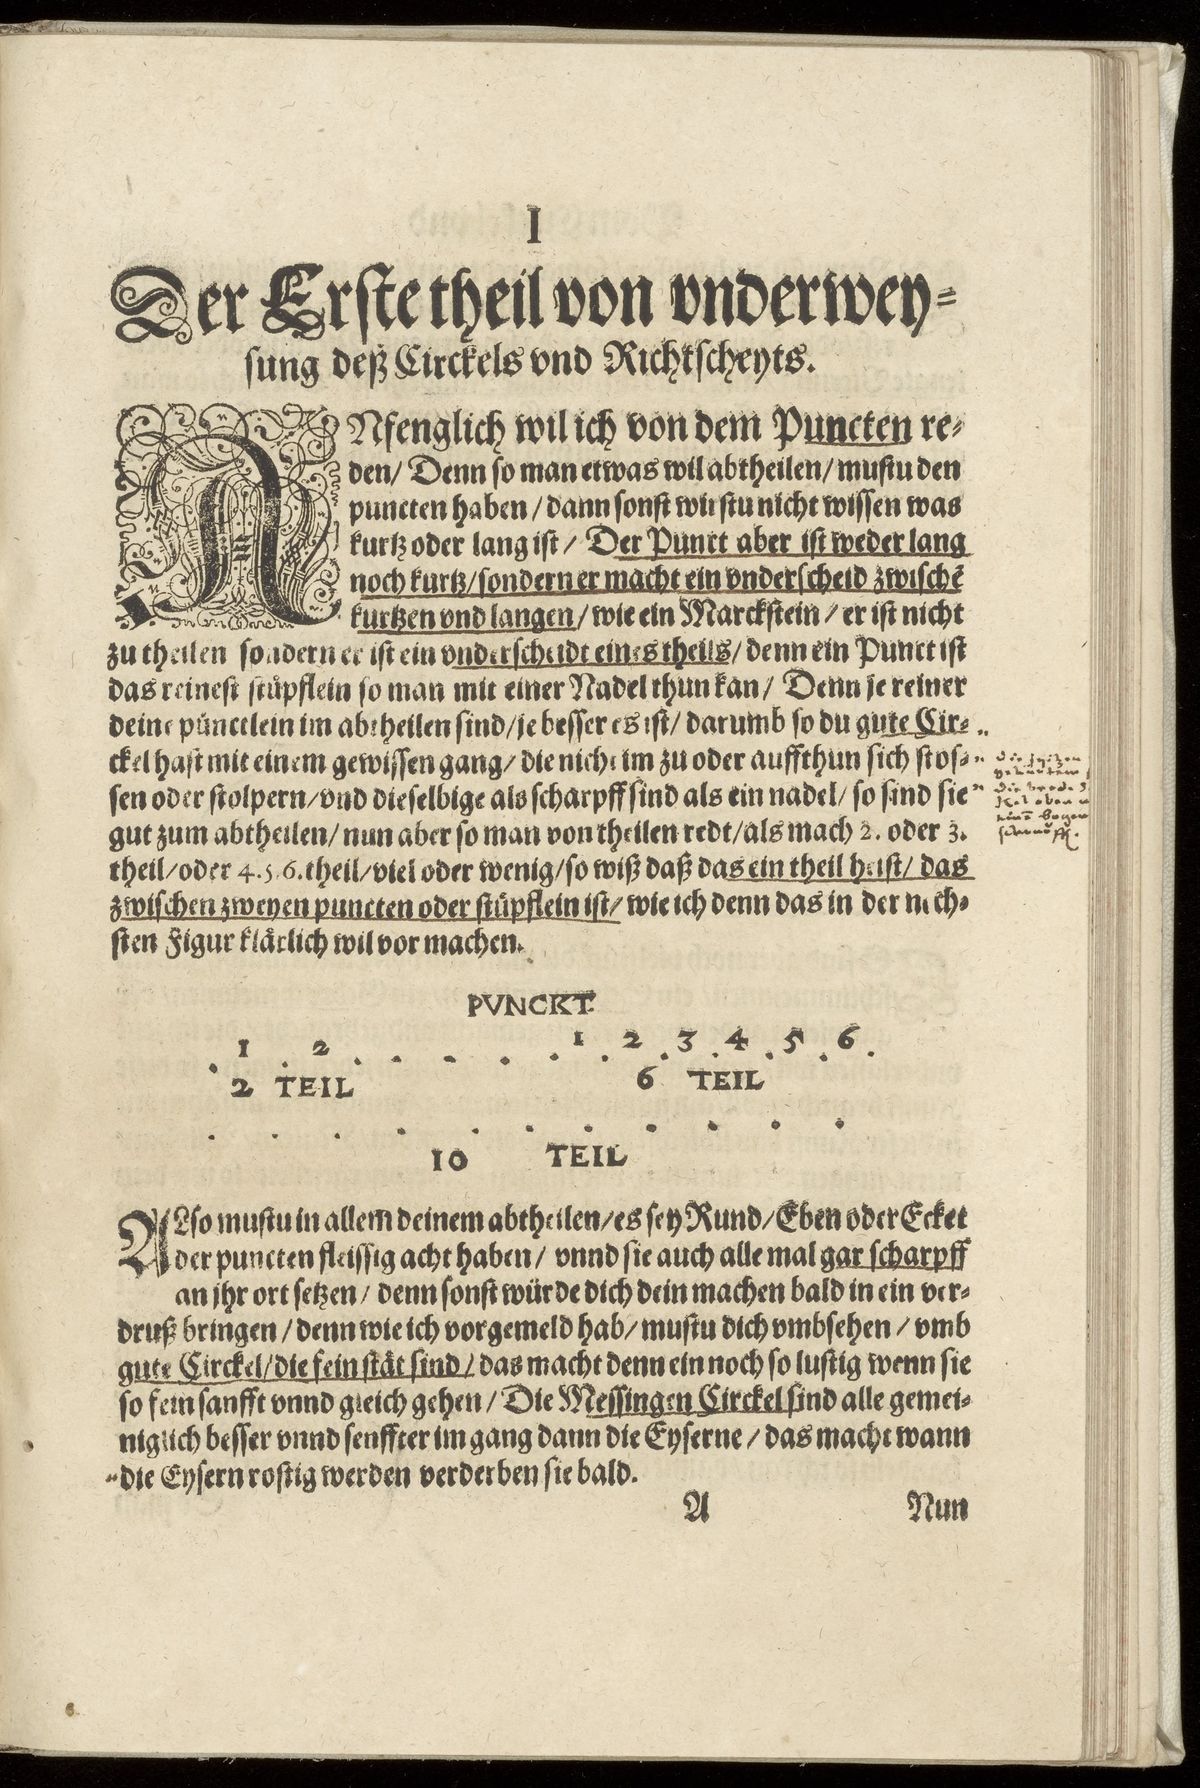 I
Der Erste theil von vnderwey-
sung deß Circkels vnd Richtscheyts.
ANfenglich wil ich von dem Puncten re-
den/ Denn so man etwas wil abtheilen/ mustu den
puncten haben/ dann sonst wirstu nicht wissen was
kurtz oder lang ist/ Der Punct aber ist weder lang
noch kurtz/ sondern er macht ein vnderscheid zwischẽ
kurtzen vnd langen/ wie ein Marckstein/ er ist nicht
zu theilen sondern er ist ein vnderscheidt eines theils/ denn ein Punct ist
das reinest stüpflein so man mit einer Nadel thun kan/ Denn je reiner
deine pünctlein im abtheilen sind/ je besser es ist/ darumb so du gute Cir-
ckel hast mit einem gewissen gang/ die nicht im zu oder auffthun sich stos-
sen oder stolpern/ vnd dieselbige als scharpff sind als ein nadel/ so sind sie
gut zum abtheilen/ nun aber so man von theilen redt/ als mach 2. oder 3.
theil/ oder 4. 5. 6. theil/ viel oder wenig/ so wiß daß das ein theil heist/ das
zwischen zweyen puncten oder stüpflein ist/ wie ich denn das in der nech-
sten Figur klärlich wil vor machen.
PVNCKT.
1 2 1 2 3 4 5 6
2 TEIL 6 TEIL
10 TEIL
ALso mustu in allem deinem abtheilen/ es sey Rund/ Eben oder Ecket
der puncten fleissig acht haben/ vnnd sie auch alle mal gar scharpff
an jhr ort setzen/ denn sonst würde dich dein machen bald in ein ver-
druß bringen/ denn wie ich vorgemeld hab/ mustu dich vmbsehen/ vmb
gute Circkel/ die fein stät sind/ das macht denn ein noch so lustig wenn sie
so fein sanfft vnnd gleich gehen/ Die Messingen Circkel sind alle gemei-
niglich besser vnnd senffter im gang dann die Eyserne/ das macht wann
die Eysern rostig werden verderben sie bald.
A Nun